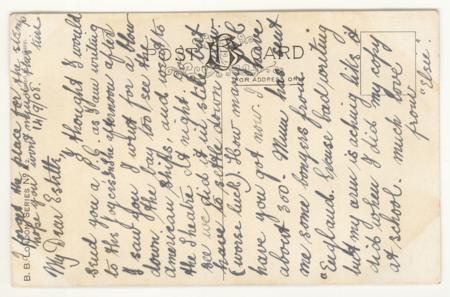 I forgot the place for the stamp
hope you won't mind this time
12/9/08.
My Dear Estelle,
I thought I would
send you a P.C. as I am writing
to this afternoon after
I saw you I went for a blow
down the bay too see the
american ships and went to
the Theatre at night.
see we did it in style but
have to settle down
(worse luck). How many have
have you got now. I have
about 300. Mum has sent
me some longers from
England. Excuse bad writing
but my arm is aching like it
did when I did my copy
at school. much love
from
"Elsie."
POST CARD
FOR ADDRESS ONLY
B. B. LONDON SERIES No